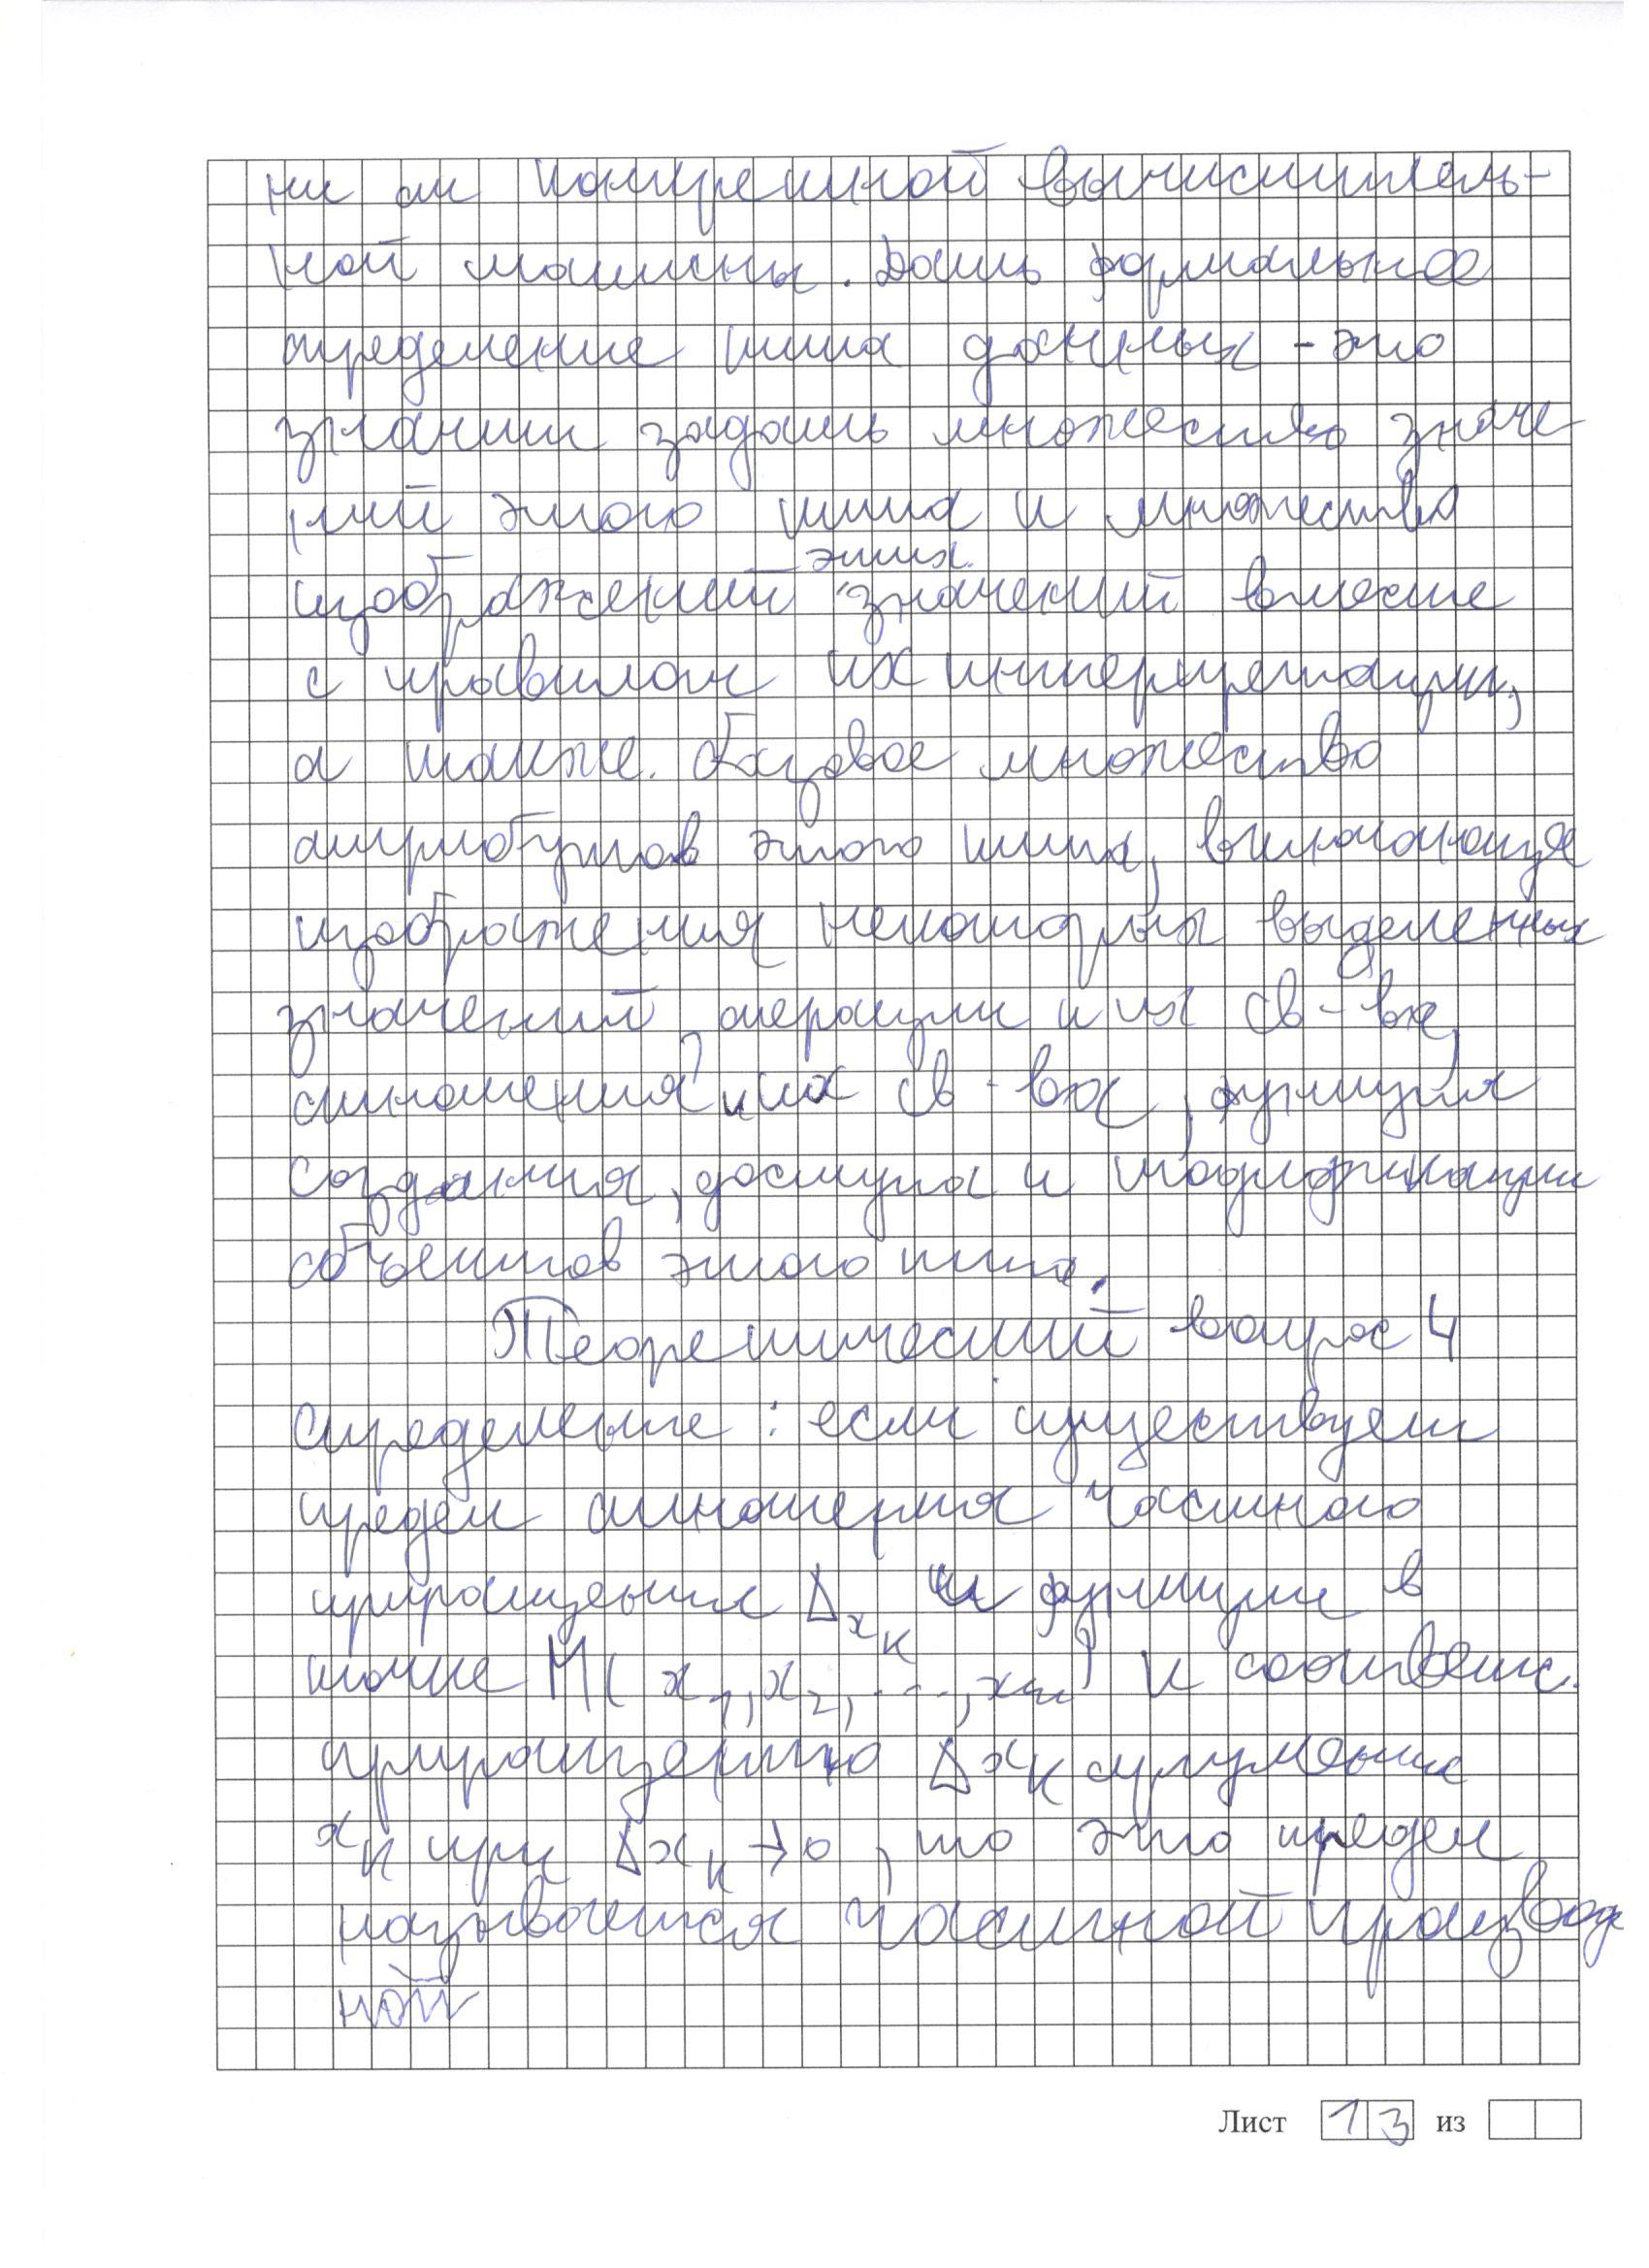 ни от конкретной вычислитель-
ной машины. Дать формальное
определение типа данных - это
значит задать множество значе
ний этого типа и множества
этих
изображений значений вместе
с правилом их интерпретации,
а также базовое множество
атрибутов этого типа, включающее
изображения некоторых выделенных
значений, операции и их св-ва,
отношения и их св-ва, функция
создания, доступа и модификации
объектов этого типа.
Теоретический вопрос 4
Определение: если существует
предел отношения частного
приращения Δxₖ u функции в
точке M(x₁, x₂, ..., xₘ) к соответс.
приращению Δxₖ аргумента
xₖ при Δxₖ → 0, то это предел
называется частной производ
ной
Лист 13 из